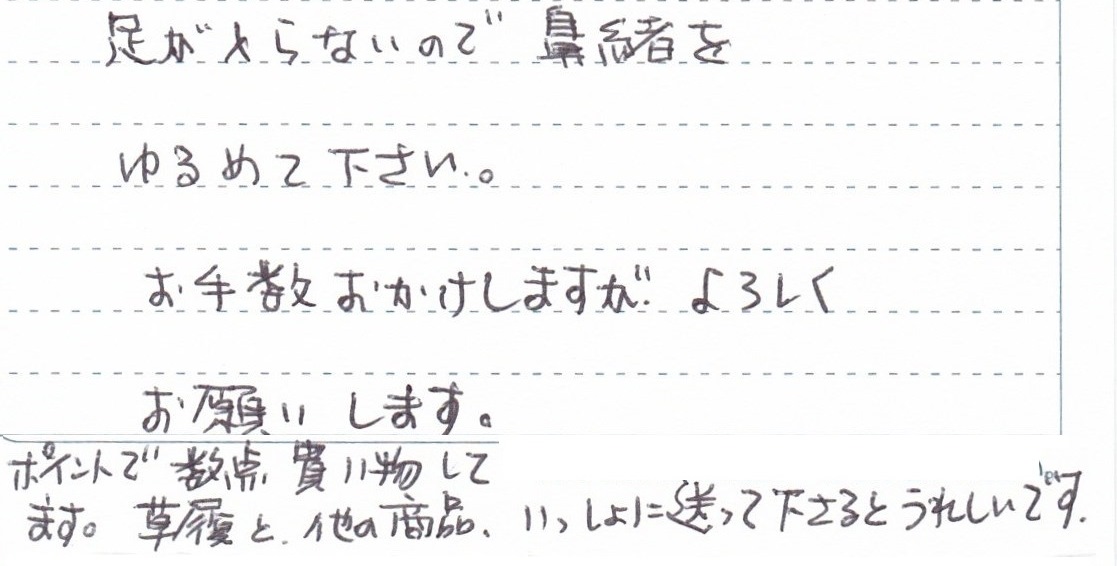 足がとらないので 鼻緒を
ゆるめて下さい。
お手数おかけしますが よろしく
お願い します。
ポイントで 数点 買い物して
ます。 草履と、他の商品、いっしょに送って下さるとうれしいです。